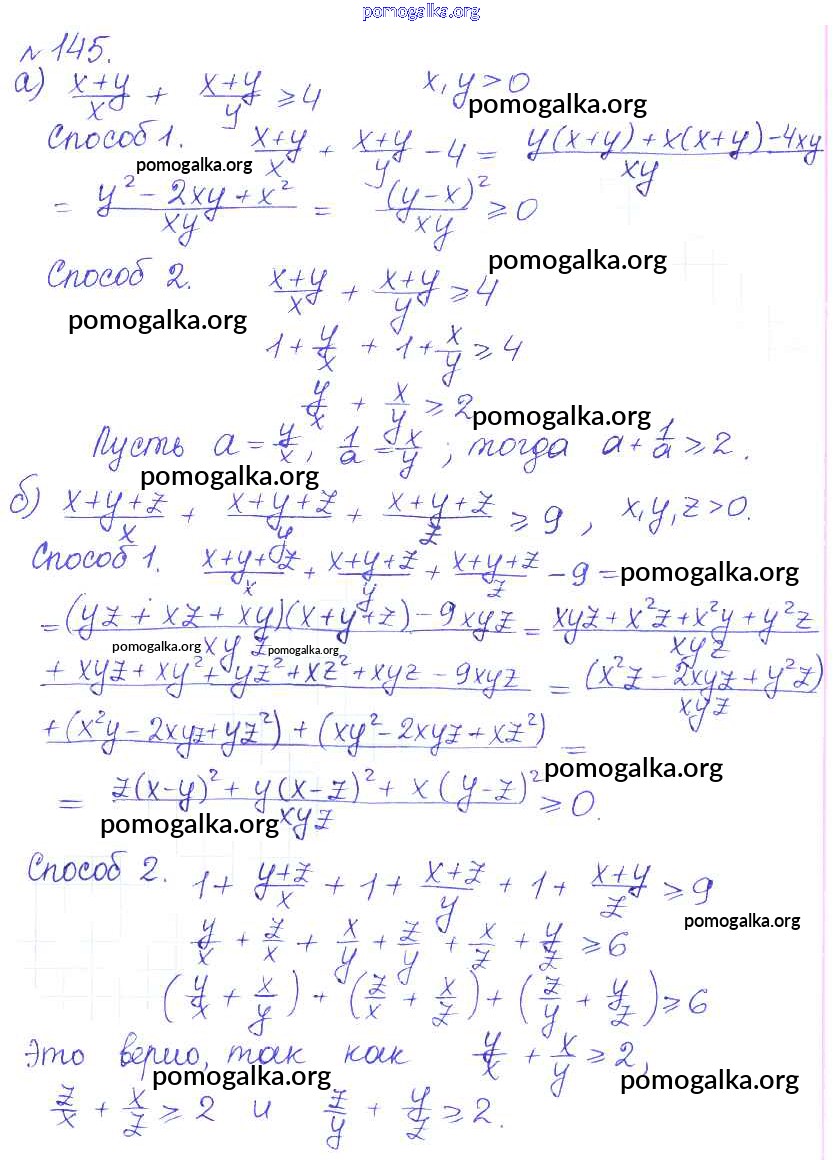 pomogalka.org
№ 145.
а) (x+y)/x + (x+y)/y ≥ 4   x, y > 0
pomogalka.org
Способ 1. (x+y)/x + (x+y)/y − 4 = (y(x+y) + x(x+y) − 4xy)/xy
pomogalka.org
= (y² − 2xy + x²)/xy = (y−x)²/xy ≥ 0
pomogalka.org
Способ 2. (x+y)/x + (x+y)/y ≥ 4
pomogalka.org
1 + y/x + 1 + x/y ≥ 4
y/x + x/y ≥ 2
pomogalka.org
Пусть a = y/x, 1/a = x/y ; тогда a + 1/a ≥ 2.
pomogalka.org
б) (x+y+z)/x + (x+y+z)/y + (x+y+z)/z ≥ 9, x, y, z > 0.
Способ 1. (x+y+z)/x + (x+y+z)/y + (x+y+z)/z − 9 =
pomogalka.org
= ((yz + xz + xy)(x+y+z) − 9xyz)/xyz = (xyz + x²z + x²y + y²z
pomogalka.org pomogalka.org
+ xyz + xy² + yz² + xz² + xyz − 9xyz)/xyz = ((x²z − 2xyz + y²z)
+ (x²y − 2xyz + yz²) + (xy² − 2xyz + xz²))/xyz =
pomogalka.org
= (z(x−y)² + y(x−z)² + x(y−z)²)/xyz ≥ 0.
pomogalka.org
Способ 2. 1 + (y+z)/x + 1 + (x+z)/y + 1 + (x+y)/z ≥ 9
pomogalka.org
y/x + z/x + x/y + z/y + x/z + y/z ≥ 6
(y/x + x/y) + (z/x + x/z) + (z/y + y/z) ≥ 6
Это верно, так как y/x + x/y ≥ 2,
pomogalka.org pomogalka.org
z/x + x/z ≥ 2 и z/y + y/z ≥ 2.